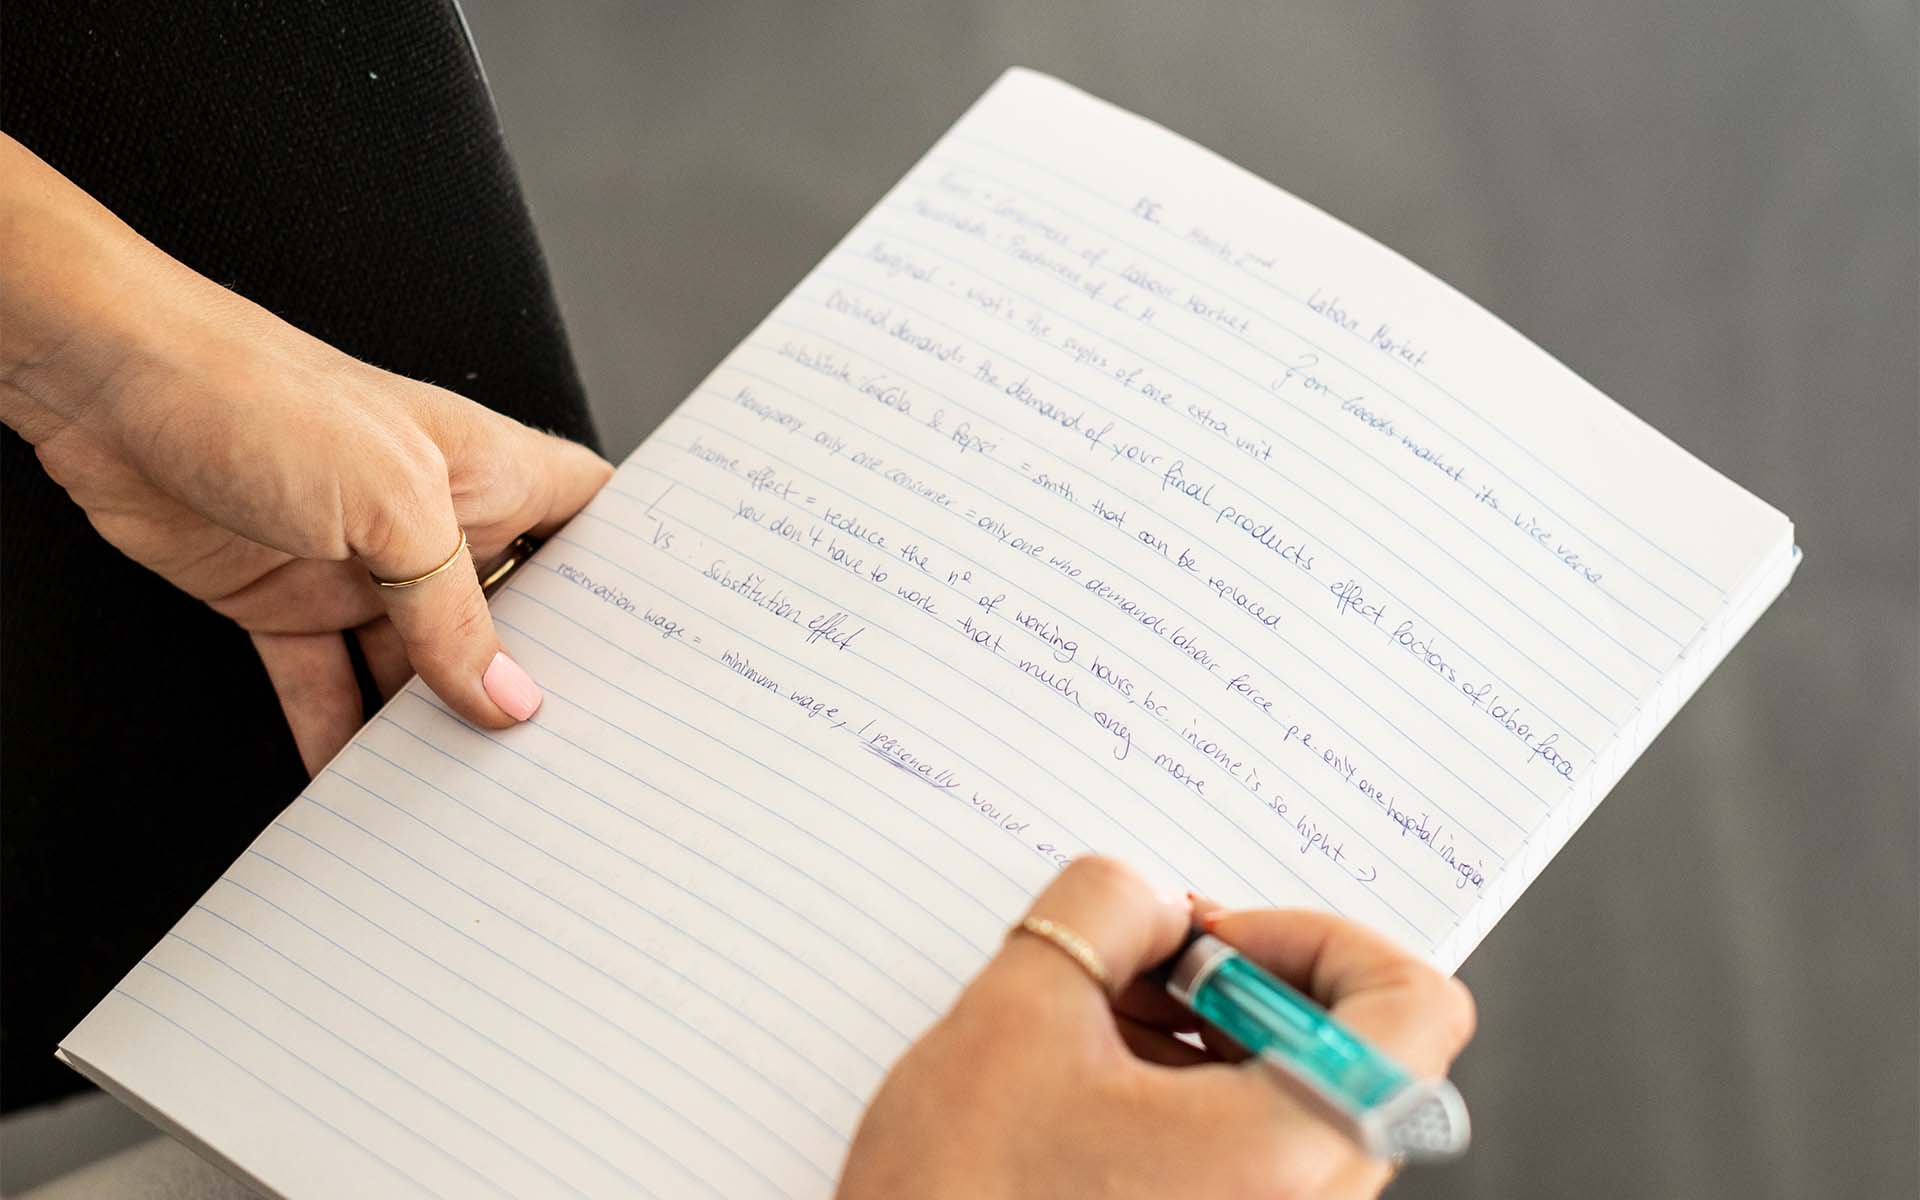 PE. March 2nd Labour Market
Firm - Consumers of Labour Market } on Goods market its vice versa
Households - Producers of L. M
Marginal - what's the surplus of one extra unit
Derived demand: the demand of your final products effect factors of labor force
Substitute CocaCola & Pepsi = smth. that can be replaced
Monopsony only one consumer = only one who demands labour force p.e. only one hospital in a region
Income effect = reduce the nº of working hours, bc. income is so hight =>
you don't have to work that much any more
Vs. : Substitution effect
reservation wage = minimum wage, I personally would acc